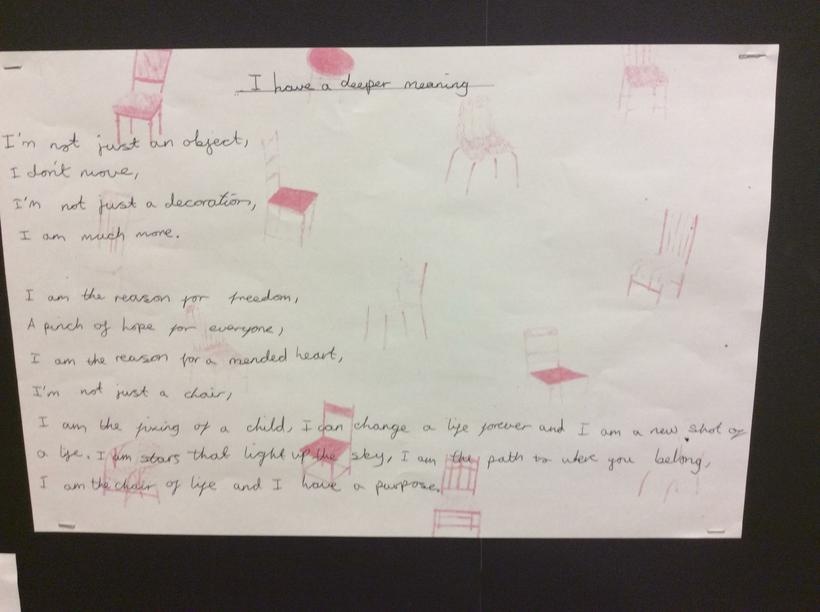 I have a deeper meaning
I'm not just an object,
I don't move,
I'm not just a decoration,
I am much more.
I am the reason for freedom,
A pinch of hope for everyone,
I am the reason for a mended heart,
I'm not just a chair,
I am the fixing of a child, I can change a life forever and I am a new shot of
a life. I am stars that light up the sky, I am the path to where you belong,
I am the chair of life and I have a purpose.